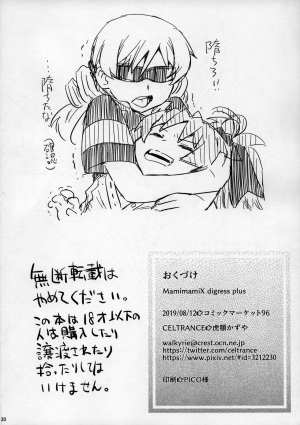 堕ちろ!!
…堕ちたな…
(確認)
無断転載は
やめてください。
この本は18才以下の
人は購入したり
譲渡されたり
拾ったりしては
いけません。
おくづけ
MamimamiX digress plus
2019/08/12✪コミックマーケット96
CELTRANCE✪虎顎かずや
walkyrie@crest.ocn.ne.jp
https://twitter.com/celtrance
https://www.pixiv.net/#id=3212230
印刷✪PICO様
30